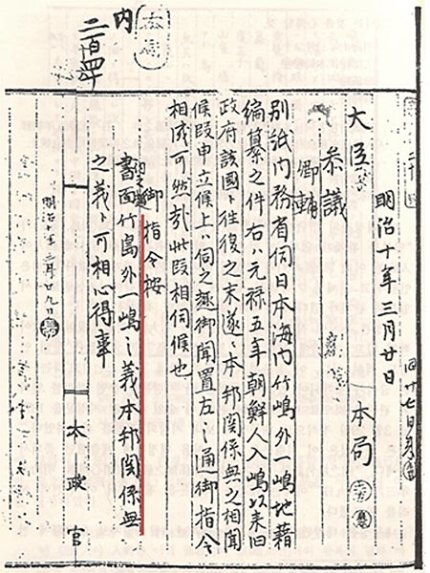 明治十年三月廿日
大臣 本局
参議
卿輔
別紙内務省伺日本海内竹嶋外一嶋地籍
編纂之件右ハ元禄五年朝鮮人入嶋以来旧
政府該国ト往復之末遂ニ本邦関係無之相聞
候段申立候上ハ伺之趣御聞置左ニ通御指令
相成可然哉此段相伺候也
御指令按
書面竹島外一嶋之義本邦関係無
之義ト可相心得事
明治十年三月廿九日
内
二百四十